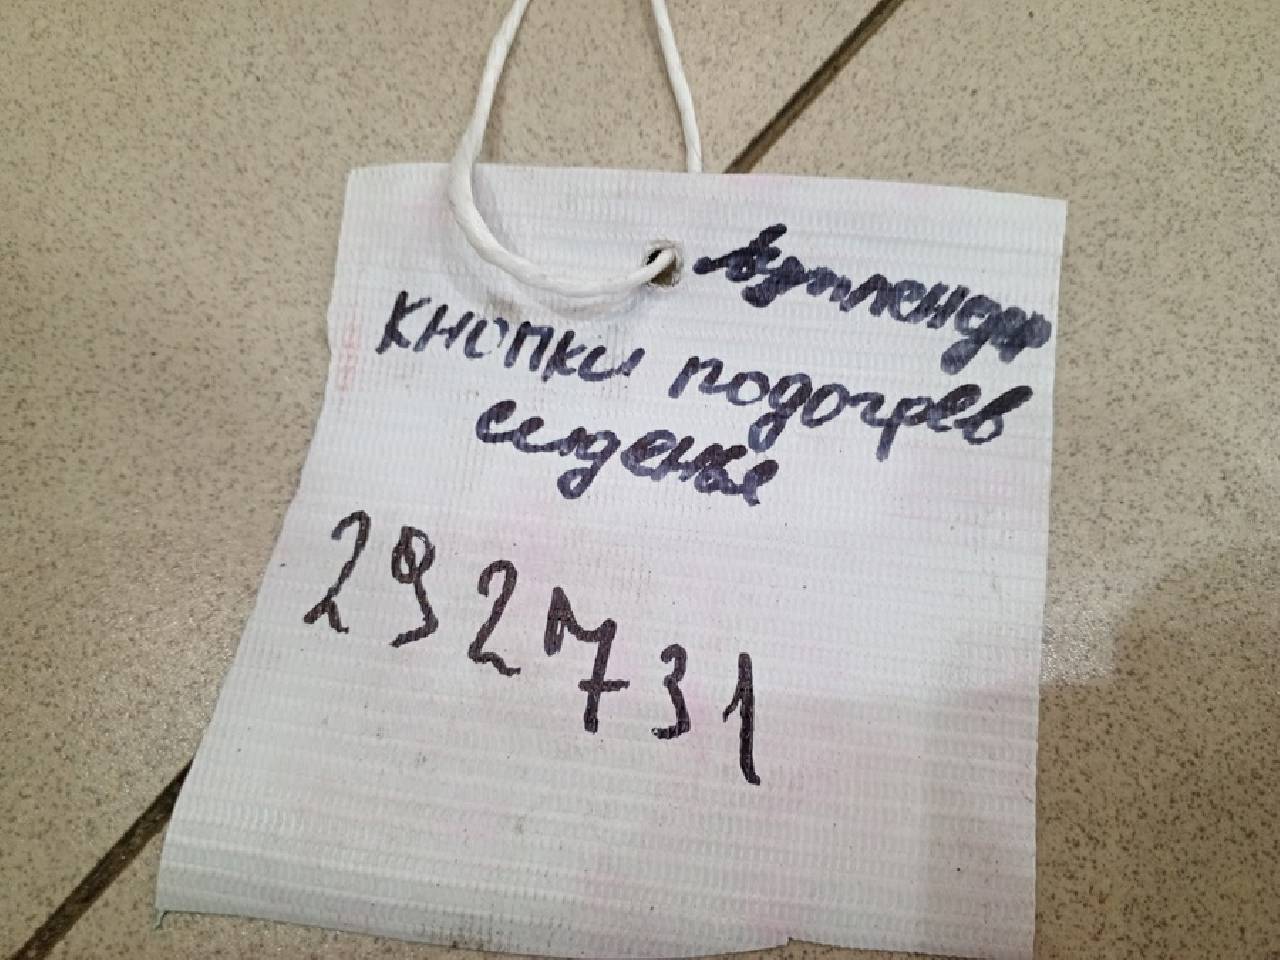 Аутлендер
Кнопки подогрев
сиденье
292731